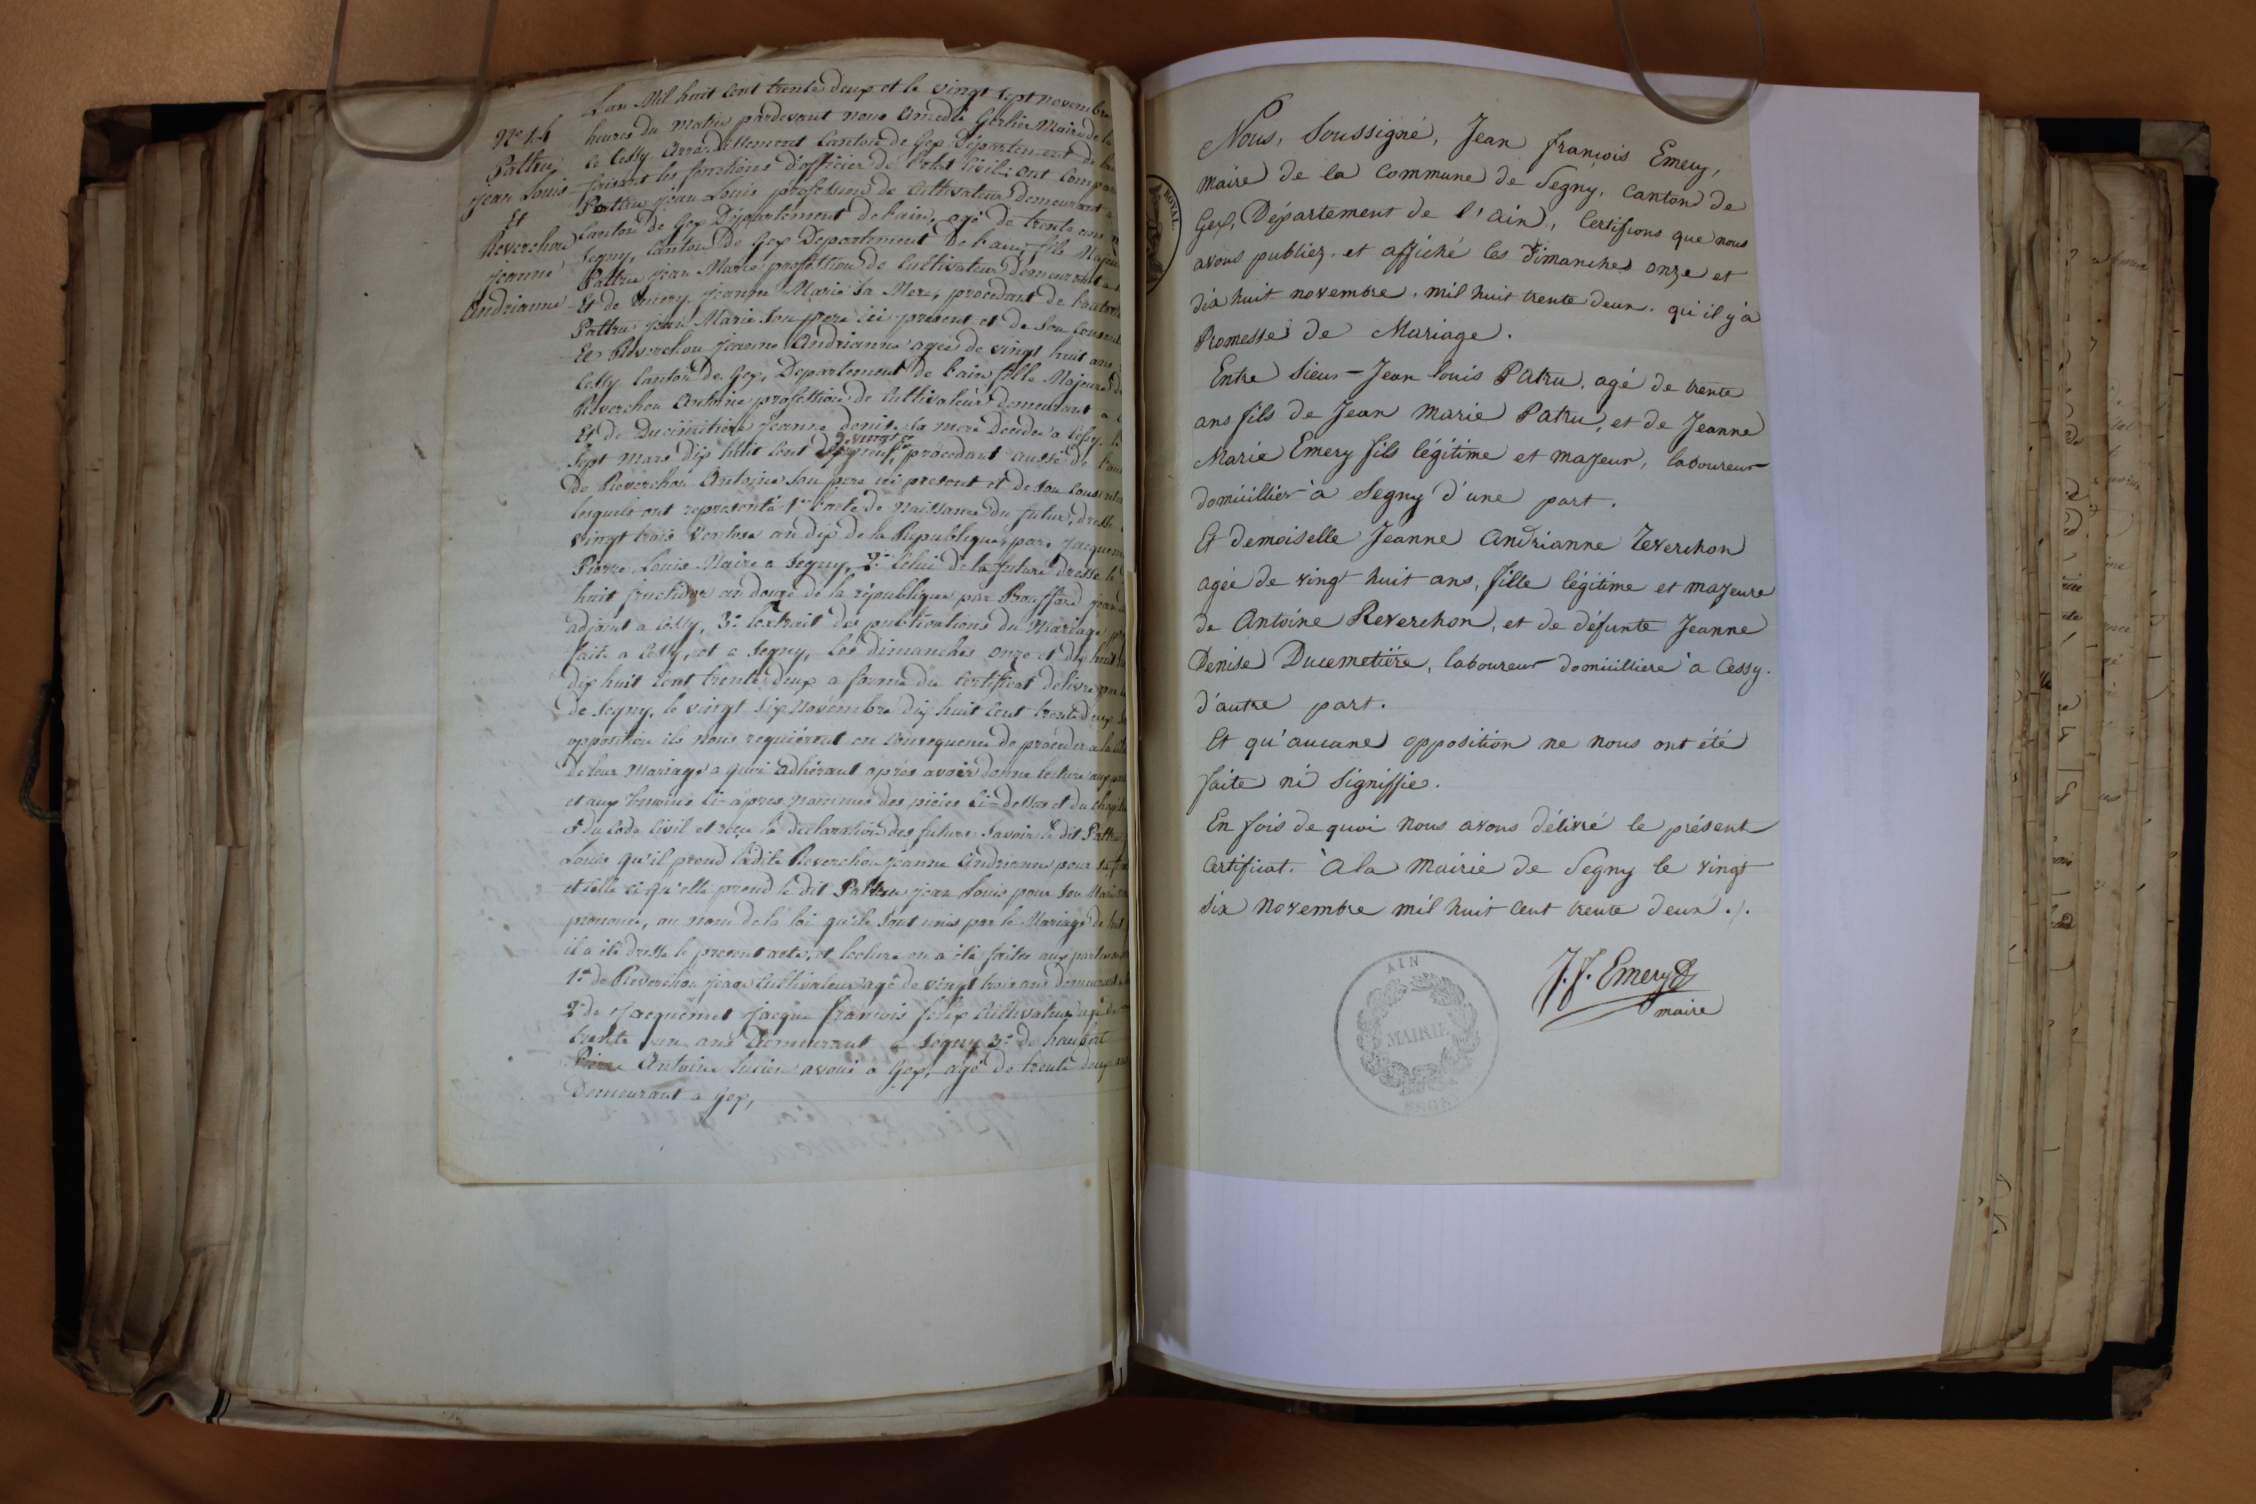 N° 14
Pattru
jean Louis
Et
Reverchon
jeanne
Andrianne
Lan Mil huit Cent trente deux et le vingt sept novembre
heures du matin pardevant nous Amedé Gerlier Maire de la
de Cessy arrondissement Canton de Gex Département de
faisant les fonctions d'officier de l'état Civil; ont Compar
Pattru jean Louis profession de Cultivateur demeurant a
Canton de Gex Département de Lain, agé de trente ans
Segny, Canton de Gex Departement De Lain, fils Majeur
Pattru jean Marie profession de Cultivateur demeurant a
Et de Emery jeanne Marie Sa Mere, procedant de l'autori
Pattru jean Marie Son pere ici présent et de Son Consent
Et Reverchon jeanne Andrianne agée de vingt huit ans
Cessy Canton de Gex, Departement de Lain fille Majeure de
Reverchon Antoine profession de Cultivateur demeurant a
Et de Ducimitière jeanne denise la mere Décédée a Cessy le
Sept Mars dix huit Cent vingt procedant aussi de l'aut
de Reverchon Antoine Son pere ici present et de Son Consente
lesquels ont representé 1° l'acte de Naissance du futur, dressé
vingt trois Ventose an dix de la République, par Jacquem
Pierre Louis Maire a Segny, 2° Celui de la future dressé le
huit fructidor an douze de la république par Bouffard jean
adjoint a Cessy, 3° l'extrait des publications du Mariage
faite a Cessy, et a Segny, les dimanches onze et dix huit
dix huit Cent trente deux a forme du Certificat delivré
de Segny, le vingt Six Novembre dix huit Cent trente deux
opposition ils nous requièrent en Consequence de procéder a la
de leur Mariage a quoi adhérant après avoir donné lecture aux
et aux temoins Ci-après nommés des pièces Ci-dessus et du chap
du Code Civil et reçu la declaration des futurs Savoir le dit Pattru
Louis qu'il prend ladite Reverchon jeanne Andrianne pour sa
et Celle ci qu'elle prend le dit Pattru jean Louis pour Son Mari
prononcé, au nom de la loi qu'ils Sont unis par le Mariage de
il a été dressé le present acte, et lecture en a été faites aux parties
1° de Reverchon Cultivateur agé de vingt trois ans demeurant
2° de Jacquemet Jacque francois felix Cultivateur agé de
trente un ans Demeurant a Segny 3° de
Pierre Antoine Lucien avoué a Gex, agé de trente deux ans
Demeurant a Gex,
ROYAL.
Nous, Soussigné, Jean françois Emery,
maire de la Commune de Segny, Canton de
Gex, Département de l'ain, Certifions que nous
avons publiez, et affiché les dimanches onze et
dix huit novembre, mil huit trente deux. qu'il y à
Promesse de Mariage.
Entre Sieur Jean louis Patru, agé de trente
ans fils de Jean Marie Patru, et de Jeanne
Marie Emery fils légitime et majeur, laboureur
domicillier à Segny d'une part.
Et demoiselle Jeanne Andrianne Reverchon
agée de vingt huit ans, fille légitime et majeure
de Antoine Reverchon, et de défunte Jeanne
Denise Ducemetière, laboureur domicilliere à Cessy.
d'autre part.
Et qu'aucune opposition ne nous ont été
faite ni signiffie.
En fois de quoi nous avons délivré le présent
Certificat. À la Mairie de Segny le vingt
Six novembre mil huit Cent trente deux ./.
J. f. Emery
maire
AIN
MAIRIE